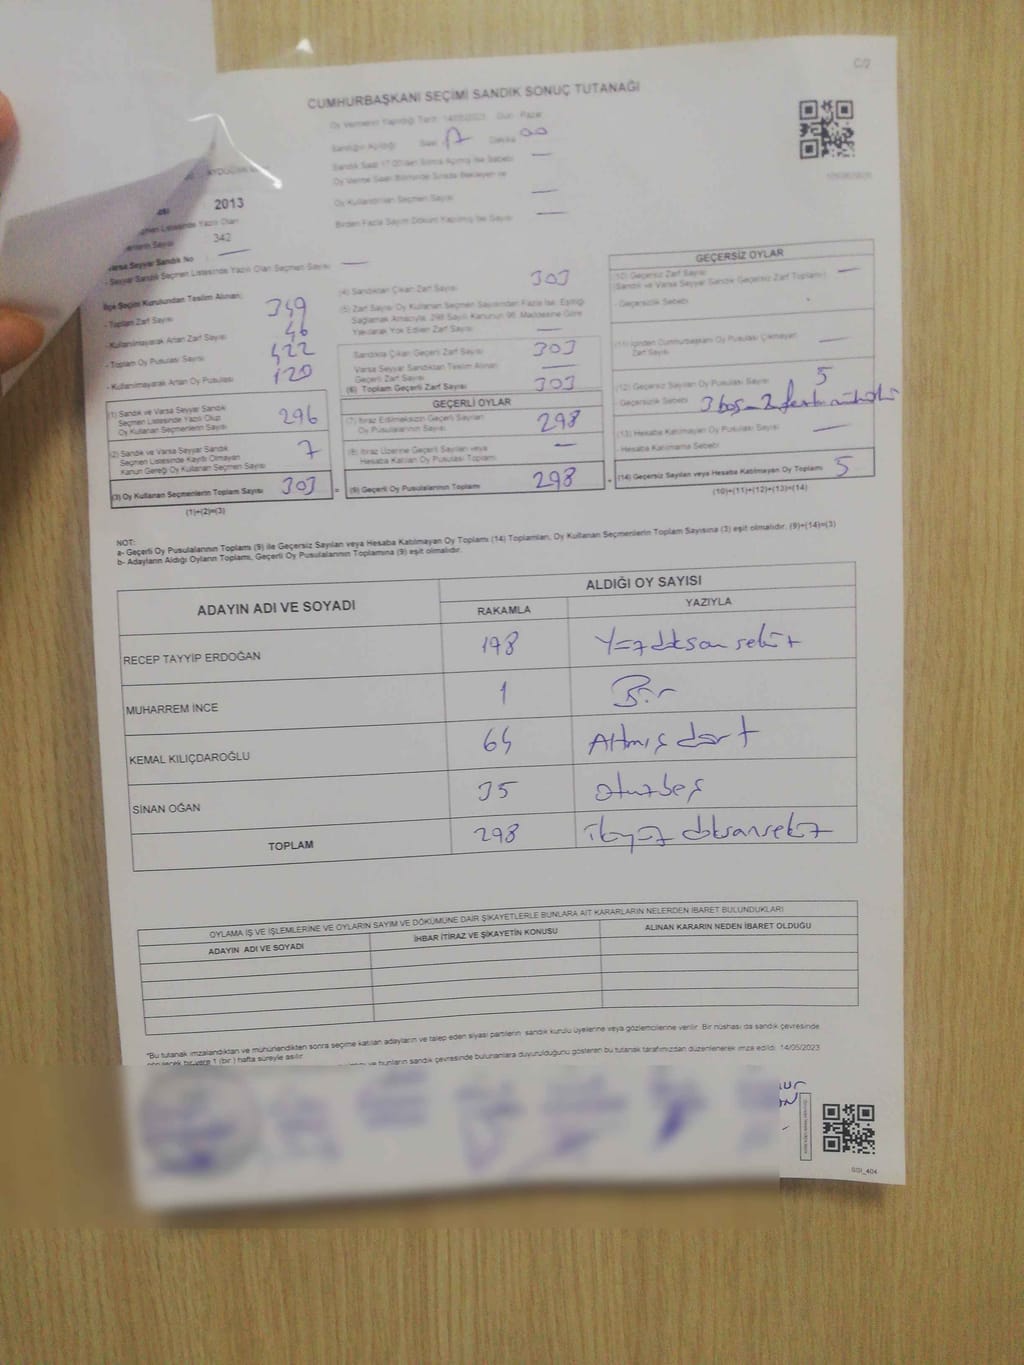 C/2
CUMHURBAŞKANI SEÇİMİ SANDIK SONUÇ TUTANAĞI
Oy Vermenin Yapıldığı Tarih : 14/05/2023 Gün : Pazar
Sandığın Açıldığı Saat 17 Dakika 00
Sandık Saat 17.00'den Sonra Açılmış İse Sebebi —
Oy Verme Saati Bitiminde Sırada Bekleyen ve
Oy Kullandırılan Seçmen Sayısı —
Birden Fazla Sayım Döküm Yapılmış İse Sayısı —
2013
Listesinde Yazılı Olan
Sayısı 342
Varsa Seyyar Sandık No —
- Seyyar Sandık Seçmen Listesinde Yazılı Olan Seçmen Sayısı —
İlçe Seçim Kurulundan Teslim Alınan:
- Toplam Zarf Sayısı 349
- Kullanılmayarak Artan Zarf Sayısı 46
- Toplam Oy Pusulası Sayısı 422
- Kullanılmayarak Artan Oy Pusulası 120
(1) Sandık ve Varsa Seyyar Sandık
Seçmen Listesinde Yazılı Olup
Oy Kullanan Seçmenlerin Sayısı 296
(2) Sandık ve Varsa Seyyar Sandık
Seçmen Listesinde Kayıtlı Olmayan
Kanun Gereği Oy Kullanan Seçmen Sayısı 7
(3) Oy Kullanan Seçmenlerin Toplam Sayısı 303
(1)+(2)=(3)
(4) Sandıktan Çıkan Zarf Sayısı 303
(5) Zarf Sayısı Oy Kullanan Seçmen Sayısından Fazla İse, Eşitliği
Sağlamak Amacıyla, 298 Sayılı Kanunun 98. Maddesine Göre
Yakılarak Yok Edilen Zarf Sayısı —
Sandıkta Çıkan Geçerli Zarf Sayısı 303
Varsa Seyyar Sandıktan Teslim Alınan
Geçerli Zarf Sayısı —
(6) Toplam Geçerli Zarf Sayısı 303
GEÇERLİ OYLAR
(7) İtiraz Edilmeksizin Geçerli Sayılan
Oy Pusulalarının Sayısı 298
(8) İtiraz Üzerine Geçerli Sayılan veya
Hesaba Katılan Oy Pusulası Toplamı —
= (9) Geçerli Oy Pusulalarının Toplamı 298
GEÇERSİZ OYLAR
(10) Geçersiz Zarf Sayısı
(Sandık ve Varsa Seyyar Sandık Geçersiz Zarf Toplamı) —
- Geçersizlik Sebebi
(11) İçinden Cumhurbaşkanı Oy Pusulası Çıkmayan
Zarf Sayısı —
(12) Geçersiz Sayılan Oy Pusulası Sayısı 5
- Geçersizlik Sebebi 3 boş - 2
(13) Hesaba Katılmayan Oy Pusulası Sayısı —
- Hesaba Katılmama Sebebi
+ (14) Geçersiz Sayılan veya Hesaba Katılmayan Oy Toplamı 5
(10)+(11)+(12)+(13)=(14)
NOT:
a- Geçerli Oy Pusulalarının Toplamı (9) ile Geçersiz Sayılan veya Hesaba Katılmayan Oy Toplamı (14) Toplamları, Oy Kullanan Seçmenlerin Toplam Sayısına (3) eşit olmalıdır. (9)+(14)=(3)
b- Adayların Aldığı Oyların Toplamı, Geçerli Oy Pusulalarının Toplamına (9) eşit olmalıdır.
ADAYIN ADI VE SOYADI
ALDIĞI OY SAYISI
RAKAMLA YAZIYLA
RECEP TAYYİP ERDOĞAN 198 Yüz doksan sekiz
MUHARREM İNCE 1 Bir
KEMAL KILIÇDAROĞLU 64 Altmış dört
SİNAN OĞAN 35 otuzbeş
TOPLAM 298 ikiyüz doksansekiz
OYLAMA İŞ VE İŞLEMLERİNE VE OYLARIN SAYIM VE DÖKÜMÜNE DAİR ŞİKAYETLERLE BUNLARA AİT KARARLARIN NELERDEN İBARET BULUNDUKLARI
ADAYIN ADI VE SOYADI İHBAR İTİRAZ VE ŞİKAYETİN KONUSU ALINAN KARARIN NEDEN İBARET OLDUĞU
*Bu tutanak imzalandıktan ve mühürlendikten sonra seçime katılan adayların ve talep eden siyasi partilerin sandık kurulu üyelerine veya gözlemcilerine verilir. Bir nüshası da sandık çevresinde
görülecek bir yere 1 (bir ) hafta süreyle asılır.
ve bunların sandık çevresinde bulunanlara duyurulduğunu gösteren bu tutanak tarafımızdan düzenlenerek imza edildi. 14/05/2023
GSI_404